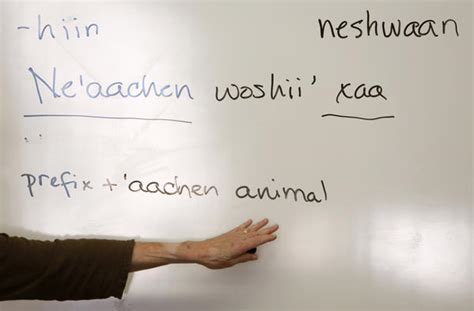 -hiin neshwaan
Ne'aachen woshii' xaa
prefix + 'aachen animal